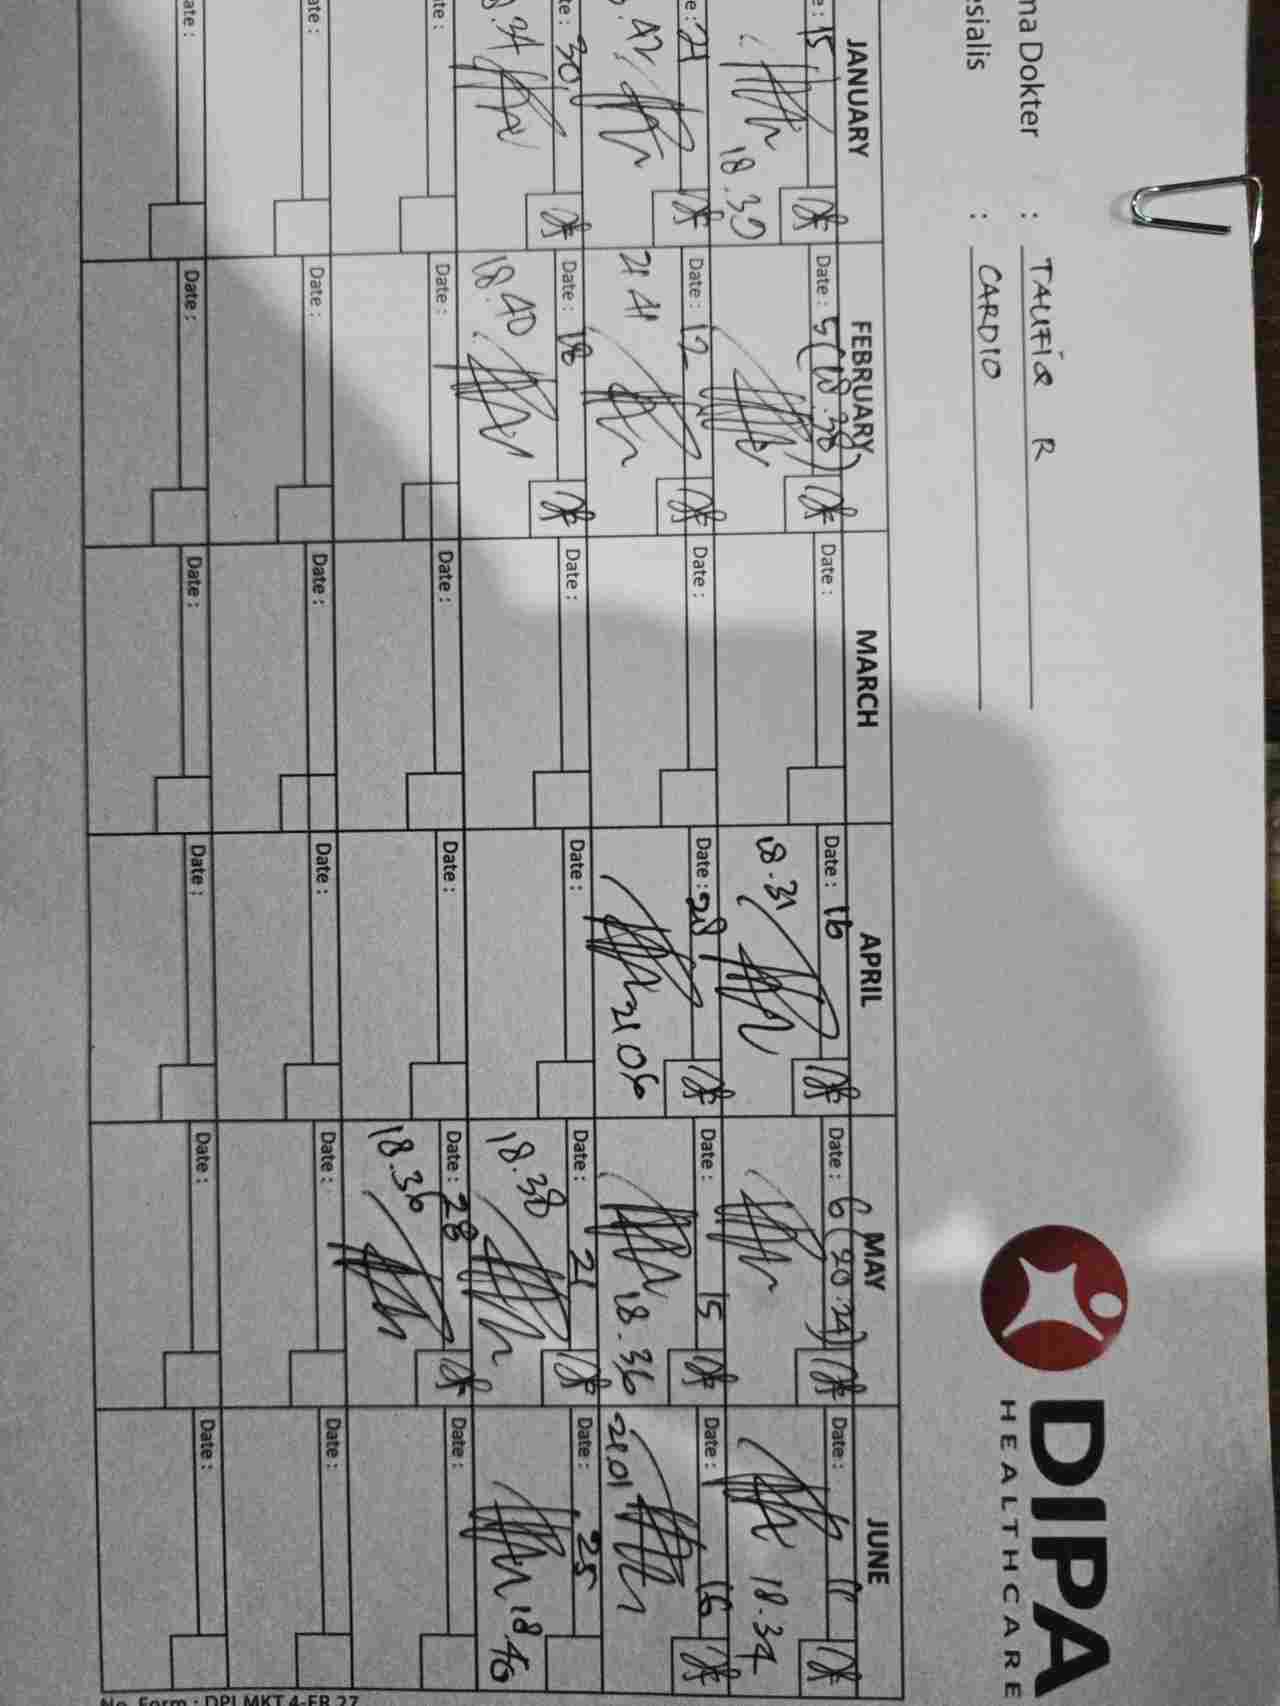 DIPA
HEALTHCARE
ma Dokter : TAUFIQ R
esialis : CARDIO
JANUARY FEBRUARY MARCH APRIL MAY JUNE
e : 15 Date : 5 (18.38) Date : Date : 16 Date : 6 (20.24) Date : 11
18.30 18.31 18.34
e : 21 Date : 12 Date : Date : 28 Date : 15 Date : 16
21 41 21 06 18.36 21.01
te : 30 Date : 18 Date : Date : Date : 21 Date : 25
18.40 18.38 18.40
te : Date : Date : Date : Date : 28 Date :
18.36
ate : Date : Date : Date : Date : Date :
ate : Date : Date : Date : Date : Date :
No. Form : DPI.MKT.4-FR.27